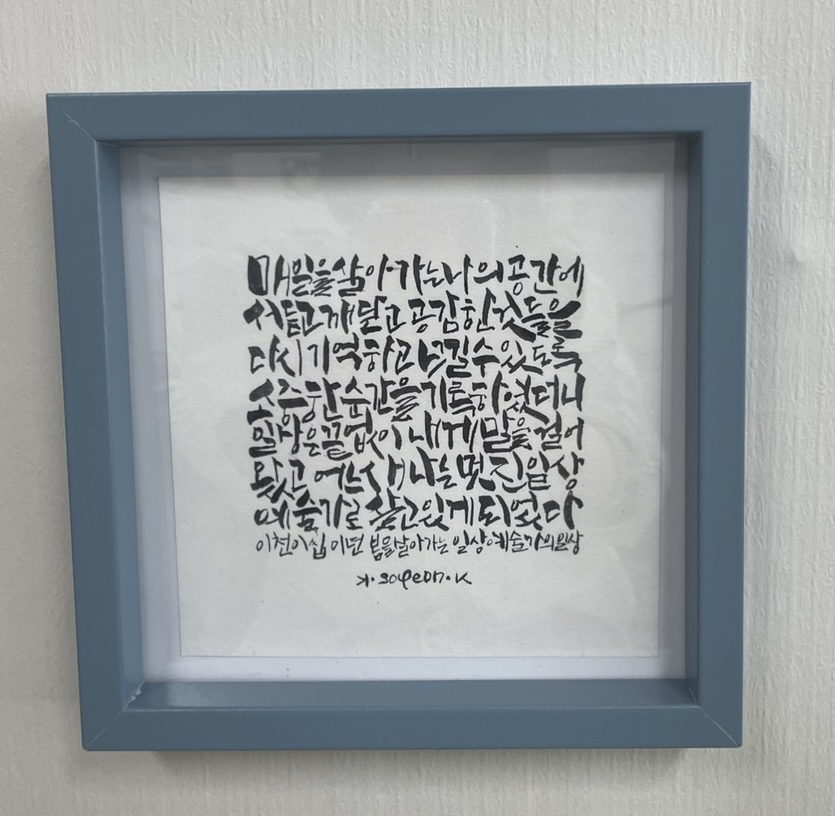 매일을 살아가는 나의 공간에
서 듣고 깨닫고 공감한 것들을
다시 기억하고 느낄 수 있도록
소중한 순간을 기록하였더니
일상은 끝없이 내게 말을 걸어
왔고 어느새 나는 멋진 일상
예술가로 살고 있게 되었다
이천이십이년 봄을 살아가는 일상예술가의 일상
K·soyeon·K